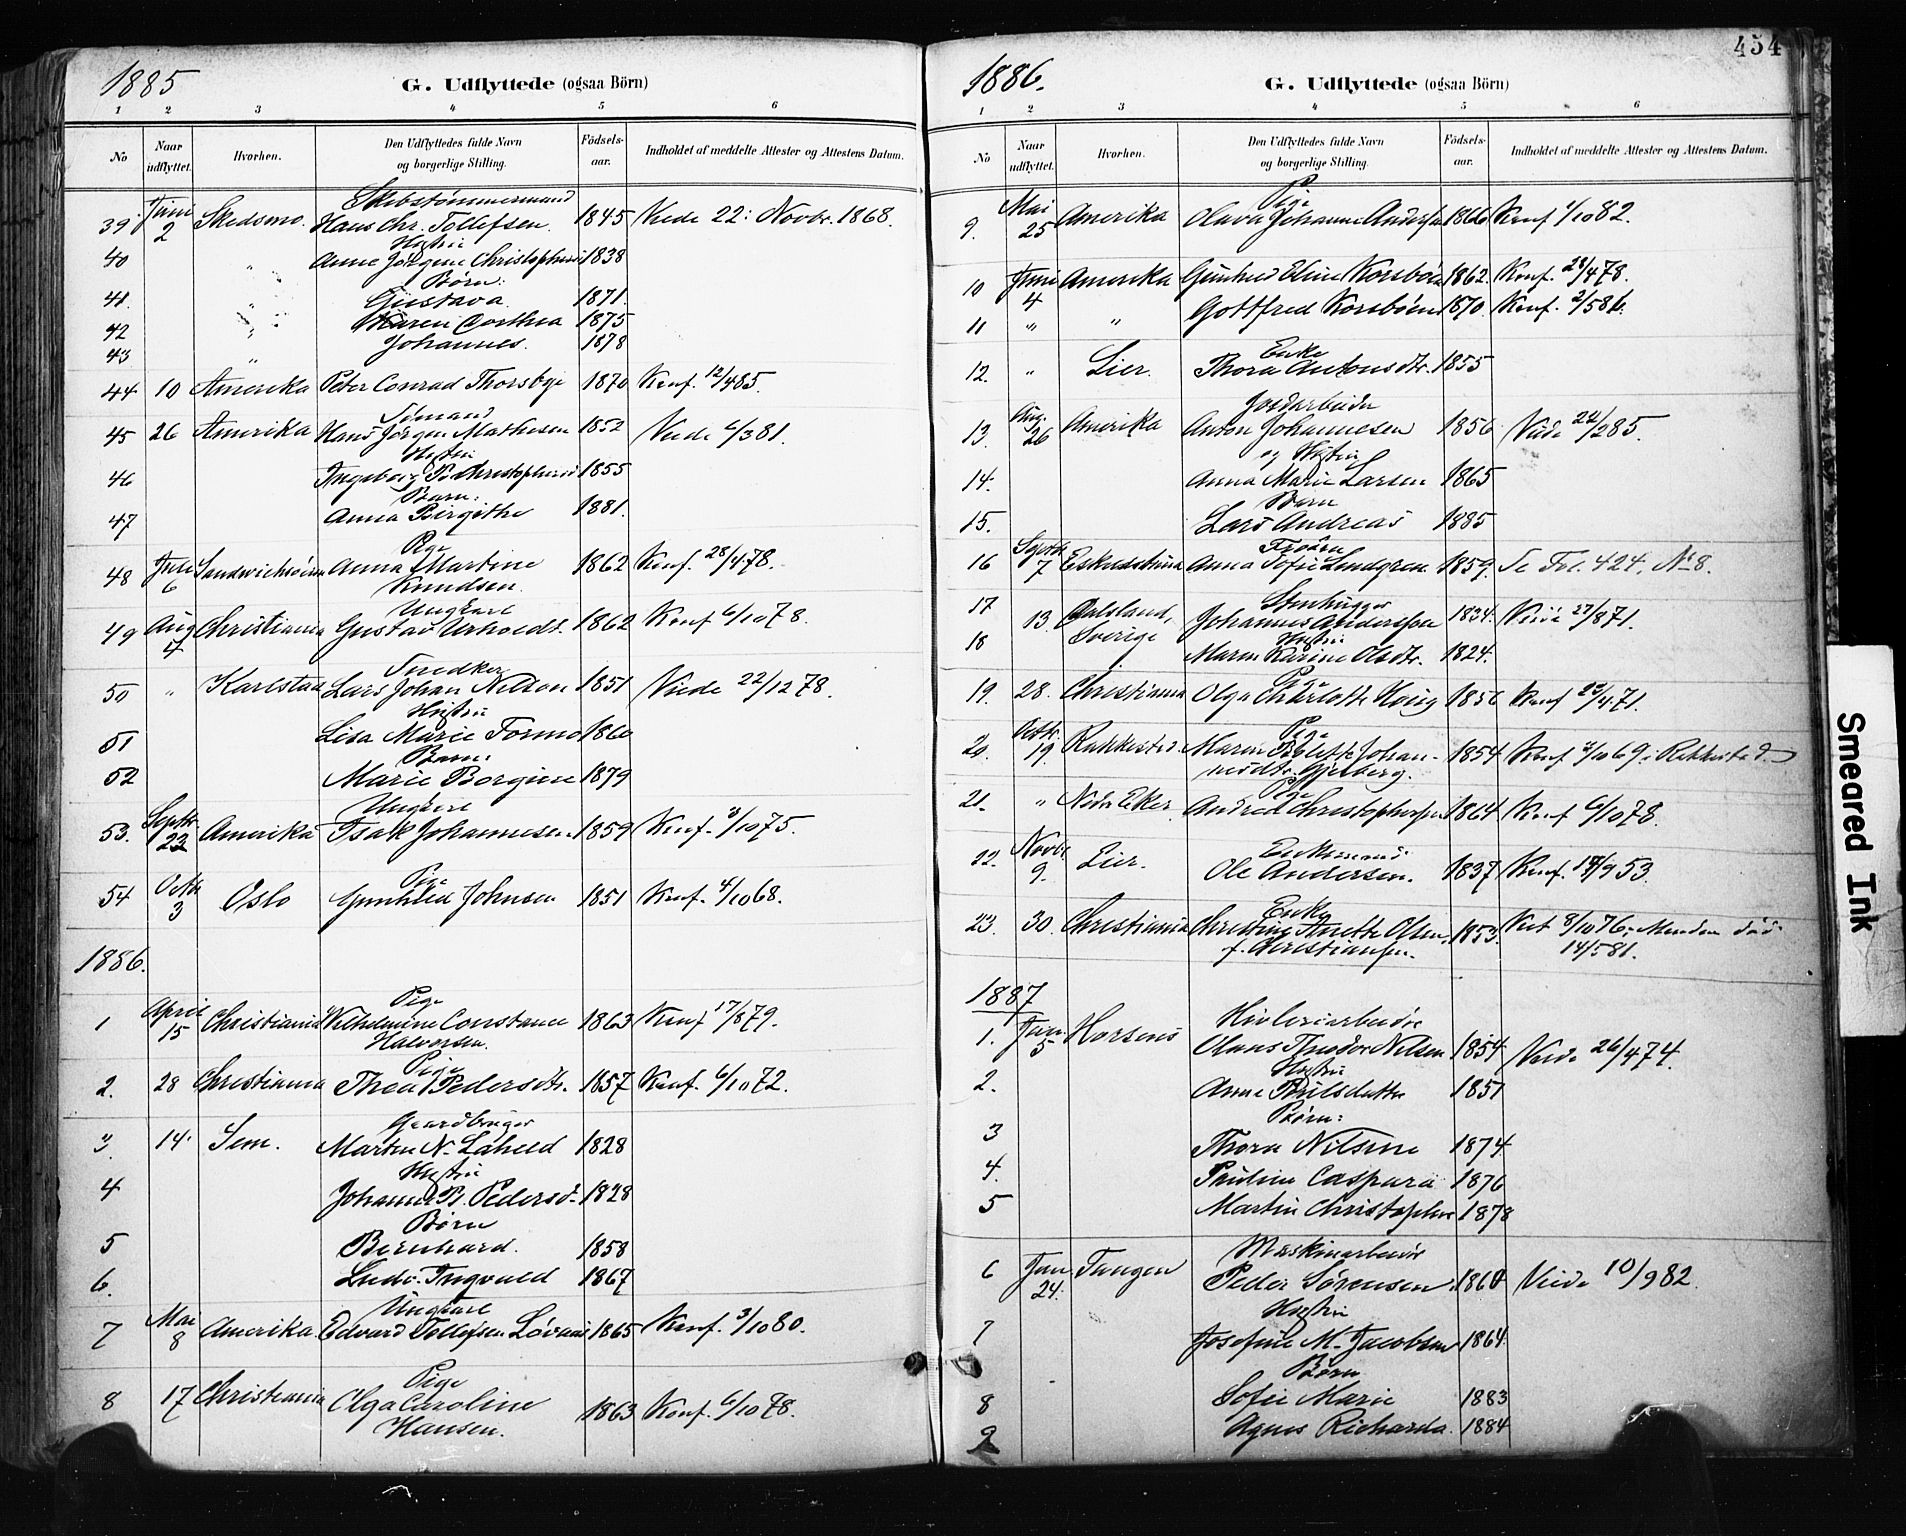 454
1885
G. Udflyttede (ogsaa Börn)
1 2 3 4 5 6
No
Naar udflyttet.
Hvorhen.
Den Udflyttedes fulde Navn og borgerlige Stilling.
Födsels-aar.
Indholdet af meddelte Attester og Attestens Datum.
Skibstømmermand
39 Juni 2 Skedsmo. Hans Chr. Tollefsen. 1845 22: Novbr. 1868.
Hustru
40 " Anne Jørgine 1838
Børn:
41. " Gustava 1871.
42 " Karen Dorthea 1875
43 " Johannes. 1878
44 10 Amerika Peter Conrad Thorsbye 1870 Konf. 12/4 85.
Sømand
45 26 Amerika Hans Jørgen Mathisen 1852 Viede 6/3 81.
Hustru
46 Ingeborg 1855
Barn:
47 Anna Birgithe 1881.
Pige
48 6 Anna Martine Knudsen. 1862 Konf. 28/4 78.
Ungkarl
49 Aug 4 Christiania Gustav 1862 Konf 6/10 78.
Snedker
50 " Karlstad Lars Johan Nilson 1851 Viede 22/12 78.
Hustru
51 Lisa Marie Formo 1860
Barn:
52 Marie Borgine 1879
Ungkarl
53. Septbr. 23 Amerika Isak Johannesen. 1859 Konf. 3/10 75.
Pige
54 Octbr 3 Oslo Gunhild Johnsen 1851 Konf. 4/10 68.
1886.
Pige
1 April 15 Christiania Vilhelmine Constance Halvorsen. 1863 Konf 17/8 79.
Pige
2. 28 Christiania Thea Pedersdtr. 1857 Konf. 6/10 72.
Gaardbruger
3. 14. Sem. Morten N. 1828
Hustru
4 Johanne P. Pedersd. 1828
Børn
5 Bernhard. 1858
6. Ludv. Ingvald 1867
Ungkarl
7 Mai 8 Amerika Edvard Tollefsen 1865 Konf. 3/10 80.
Pige
8 17 Christiania Olga Caroline Hansen. 1863 Konf. 6/10 78.
1886.
G. Udflyttede (ogsaa Börn)
1 2 3 4 5 6
No
Naar udflyttet.
Hvorhen.
Den Udflyttedes fulde Navn og borgerlige Stilling.
Födsels-aar.
Indholdet af meddelte Attester og Attestens Datum.
Pige
9. Mai 25 Amerika Olava Johanne 1866 Konf 1/10 82.
10 Juni 4 Amerika Gunhild Eline Korsbøen 1862. Konf. 28/4 78.
11 " " Gottfred Korsbøen 1870. Konf. 2/5 86.
Enke
12. " Lier. Thora Antonsdtr. 1855
Jordarbeider
13. Aug. 26 Amerika Anton Johannesen 1856 Viede 22/2 85.
og Hustru
14. Anna Marie Larsen 1865
Barn
15. Lars Andreas 1885
Frøken
16 Septbr 7 Eskilstuna Anna Sofie Lundgren 1859. Se Fol. 424. No 8.
Stenhugger
17 13. Dalsland, Sverige Johannes Anderssen 1834. Viede 27/8 71.
Hustru
18 Maren Karine Olsdtr. 1824.
Pige
19. 28. Christiania Olga Charlotte Haug 1856 Konf 23/4 71.
Pige
20. Octbr. 19. Rakkestad Maren Johannesdtr. Gjelberg. 1854 Konf 3/10 69. Rakkestad
Pige
21. " Nedr Eker 1864 Konf 6/10 78.
Enkemand
22. Novbr. 9. Lier. Ole Andersen. 1837 Konf. 18/9 53.
Enke
23. 30. Christiania Christine Anette Olsen, f. Christiansen. 1853. Viet 8/10 76, Manden død
14/5 81.
1887
Høvleriarbeider
1. Jan. 5 Horsens Olaus Theodor Nilsen 1854 Viede 26/4 74.
Hustru
2. Anne Paulsdatter 1851
Børn:
3 Thora Nilsine 1874
4. Pauline Caspara 1876
5 Martin Christopher 1878
Maskinarbeider
6 Jan 24. Tangen Peder Sørensen 1860 Viede 10/9 82.
Hustru
7 Josefine M. Jacobsen 1864
Børn
8 Sofie Marie 1883
9 Agnes Richarda. 1884
Smeared Ink